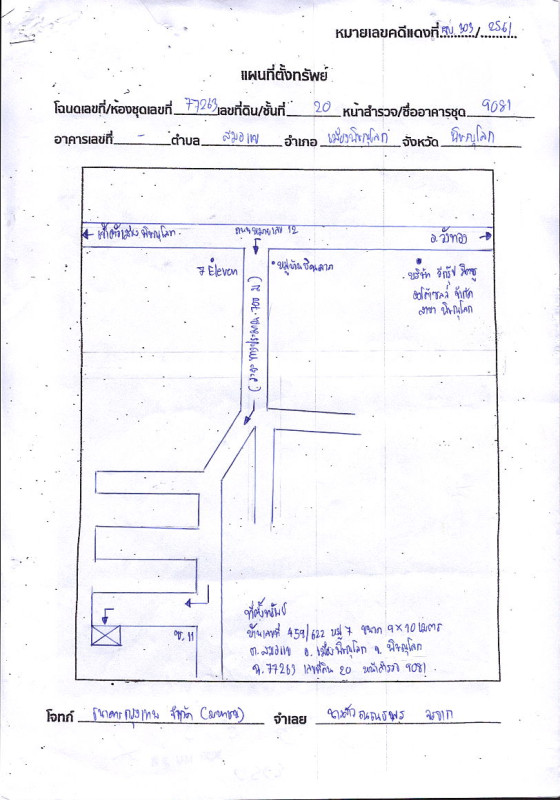 หมายเลขคดีแดงที่ ผบ.303/2561
แผนที่ตั้งทรัพย์
โฉนดเลขที่/ห้องชุดเลขที่ 77263 เลขที่ดิน/ชั้นที่ 20 หน้าสำรวจ/ชื่ออาคารชุด 9081
อาคารเลขที่ - ตำบล สมอแข อำเภอ เมืองพิษณุโลก จังหวัด พิษณุโลก
เข้าตัวเมือง พิษณุโลก
ถนนหมายเลข 12
อ.วังทอง
7 Eleven
หมู่บ้าน
บริษัท อีซูซุ
จำกัด
สาขา พิษณุโลก
(ระยะทางประมาณ 700 ม)
ซ.11
ที่ตั้งทรัพย์
บ้านเลขที่ 459/622 หมู่ 7 ขนาด 9×10 เมตร
ต.สมอแข อ.เมืองพิษณุโลก จ.พิษณุโลก
ฉ.77263 เลขที่ดิน 20 หน้าสำรวจ 9081
โจทก์ ธนาคารกรุงเทพ จำกัด (มหาชน) จำเลย นางสาว